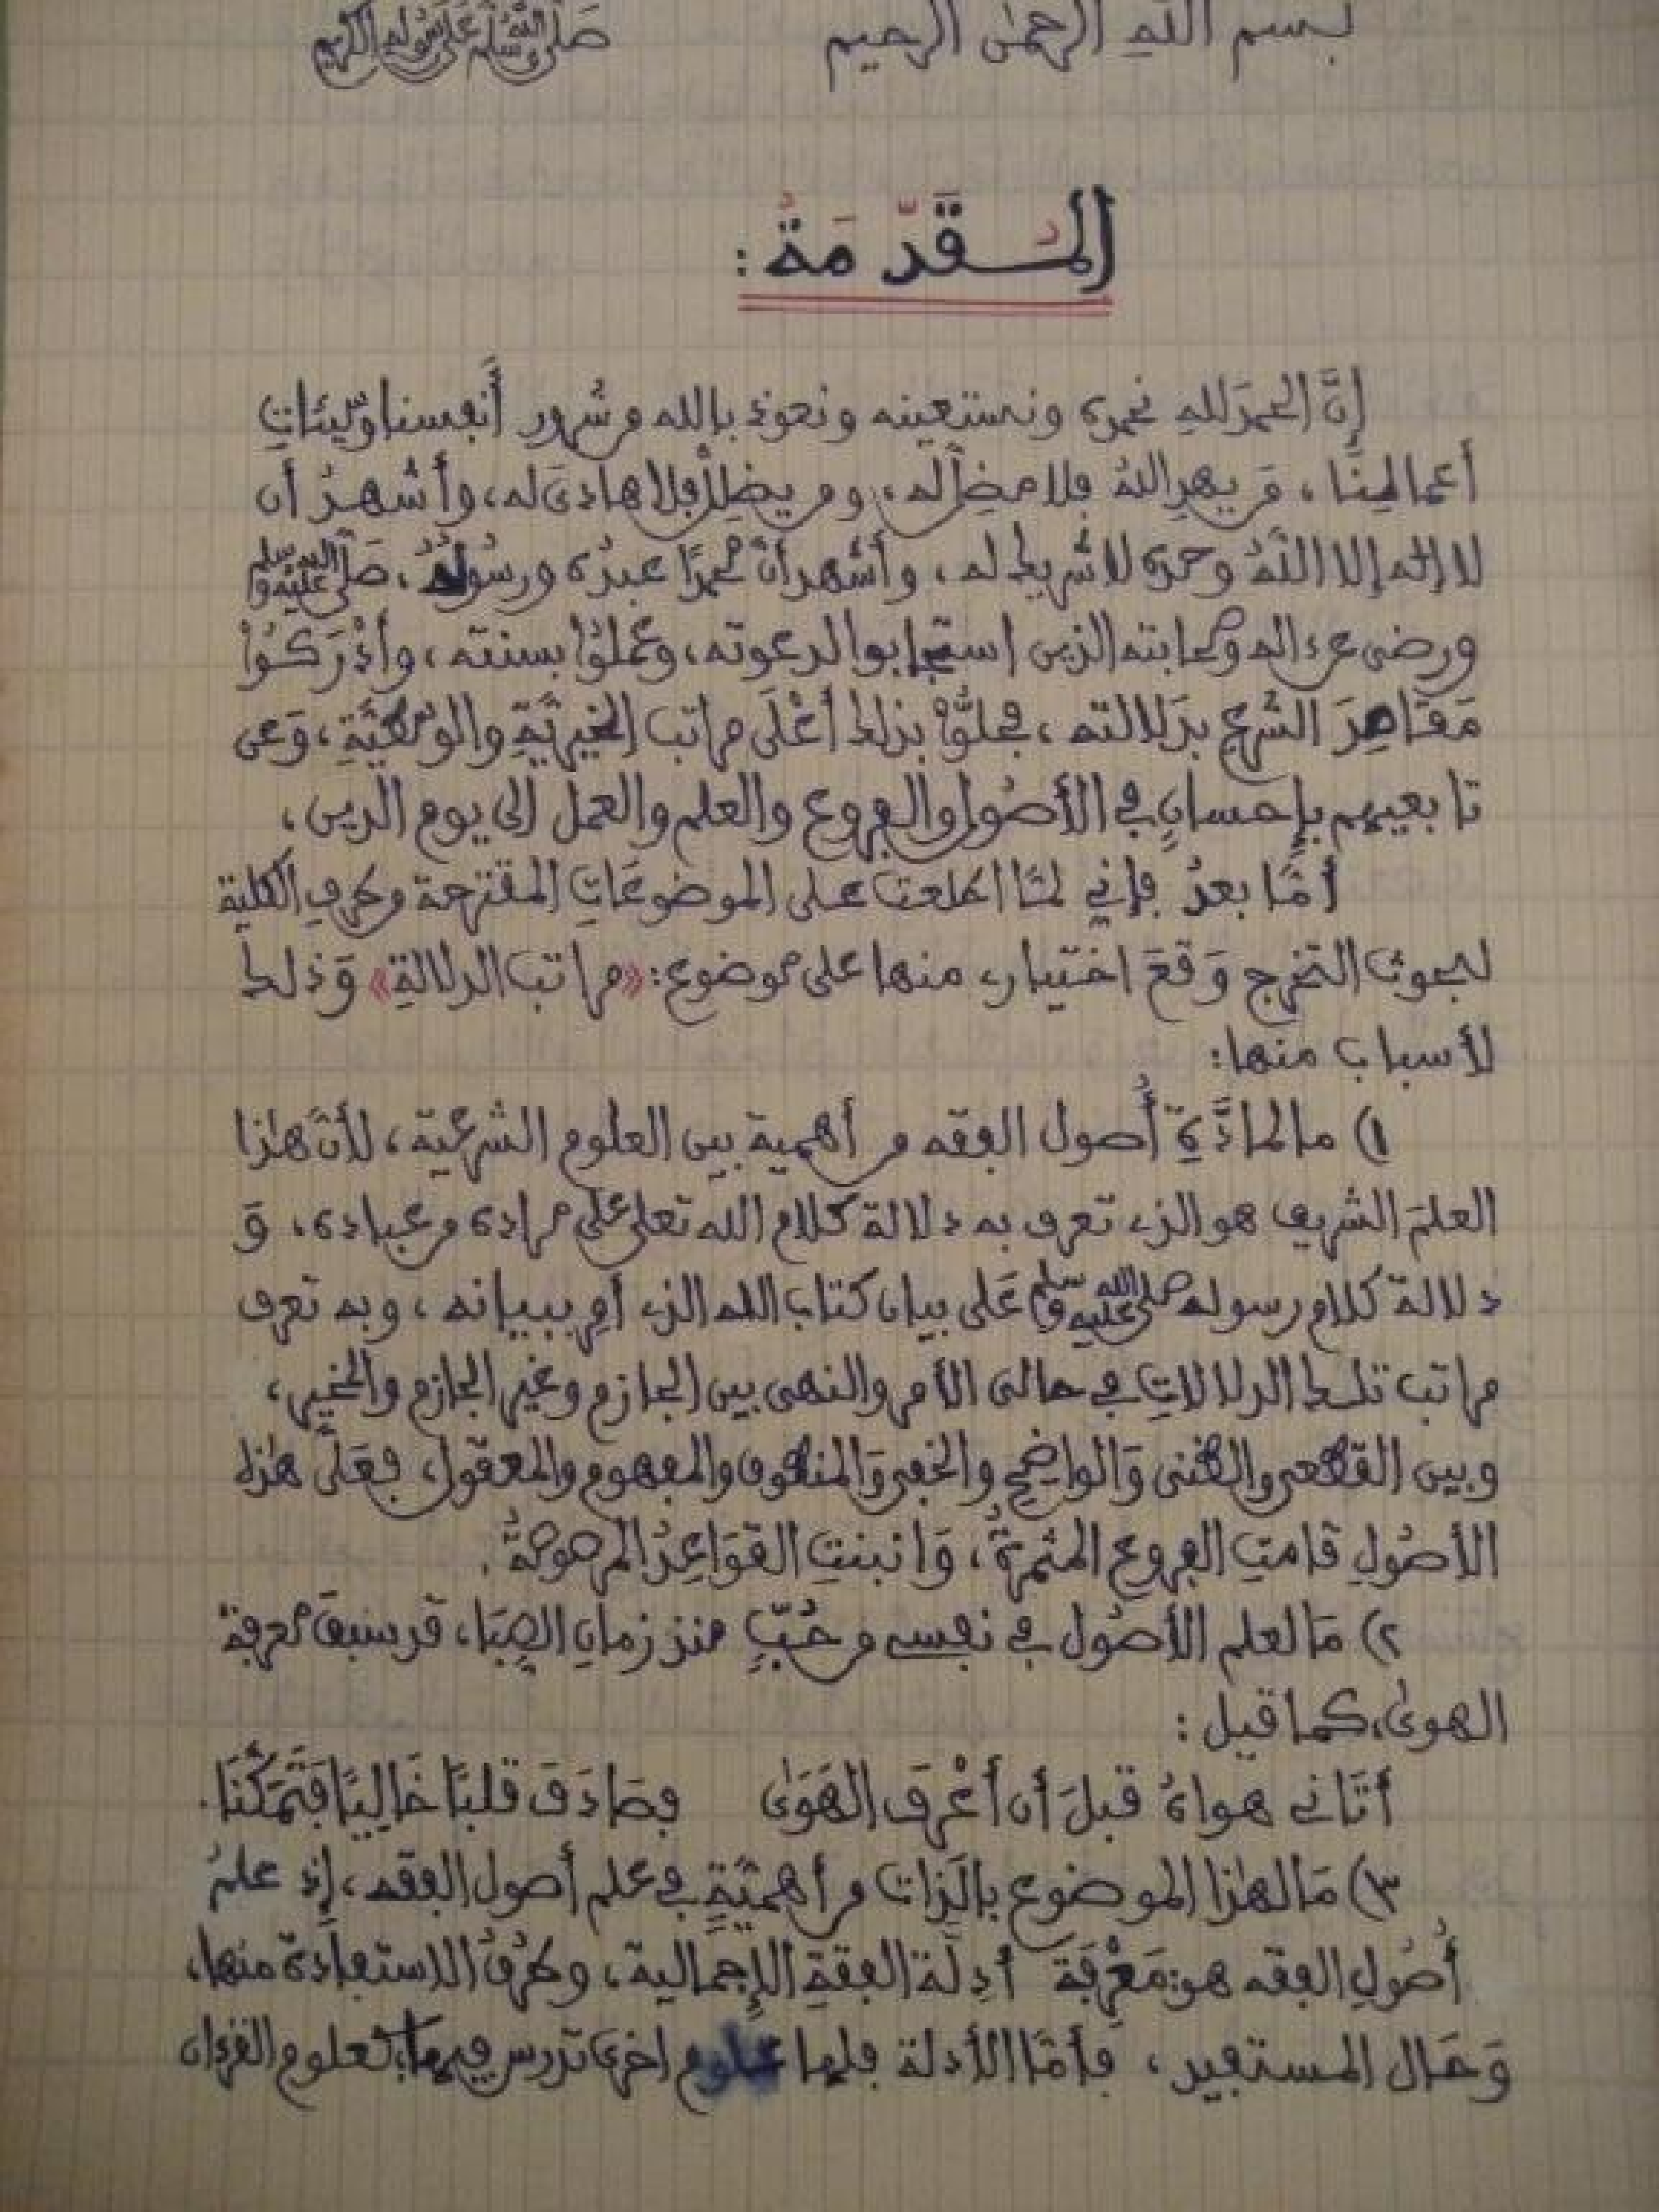 بسم الله الرحمٰن الرحيم صلى الله وسلم على رسوله الكريم
المُقَدِّمَةُ:
إنَّ الحمدَ للهِ نحمده ونستعينه ونعوذ بالله من شرور أنفسنا وسيّئاتِ
أعمالِنَا، مَن يهدِ اللهُ فلا مضِلَّ له، ومن يضلِل فلا هاديَ له، وأشهدُ أن
لا إله إلا اللهُ وحده لا شريك له، وأشهد أنَّ محمدًا عبدُه ورسولُهُ، صلَّى الله عليه وسلم
ورضي عن ءاله وصحابته الذين استجابوا لدعوته، وعملُوا بسنته، وأدْرَكُوا
مَقَاصِدَ الشرع بدَلالته، فحلُّوا بذلك أعْلَى مراتب الخيريَّةِ والوسَطيَّةِ، وَعن
تابعيهم بإحسانٍ في الأصُول والفروع والعلم والعمل إلى يوم الدين،
أمَّا بعدُ فإني لمَّا اطلعت على الموضوعَاتِ المقترحة من طرفِ الكلية
لبحوث التخرج وَقَعَ اختياري منها على موضوع: «مراتب الدلالةِ» وَذلك
لأسباب منها:
١) ما لمادَّةِ أُصول الفقه من أهمية بين العلوم الشرعية، لأنَّ هٰذا
العلمَ الشريف هو الذي تعرف به دلالة كلام الله تعلى على مراده من عباده، وَ
دلالة كلام رسوله صلى الله عليه وسلم عَلى بيان كتاب الله الذي أمِر ببيانه، وبه تعرف
مراتب تلك الدلالاتِ في حالتي الأمر والنهي بين الجازم وغير الجازم والتخيير،
وبين القطعي والظني وَالواضِحِ والخفي وَالمنطوق والمفهوم والمعقول، فعَلَى هٰذه
الأصُولِ قامتِ الفروع المثمرةُ، وَانبنتِ القوَاعِدُ المرصوصةُ.
٢) مَا لعلم الأصُول في نفسي من حُبٍّ منذ زمانِ الصِبَا، قد سبق معرفة
الهوىٰ، كما قيل:
أتَاني هواهُ قبلَ أن أعْرفَ الهَوَىٰ فصَادَفَ قلبًا خَالِيًا فَتَمَكَّنَا.
٣) مَا لهٰذا الموضوع بالذات من أهميَّةٍ في علم أصول الفقه، إذ علمُ
أُصُولِ الفقه هو: مَعْرفَة أدِلَّة الفقهِ الإجمالية، وطرُقُ الاستفادَة منها،
وَحَال المستفيد، فأمَّا الأدلة فلها علوم اخرى تدرس فيها، كعلوم القرءان